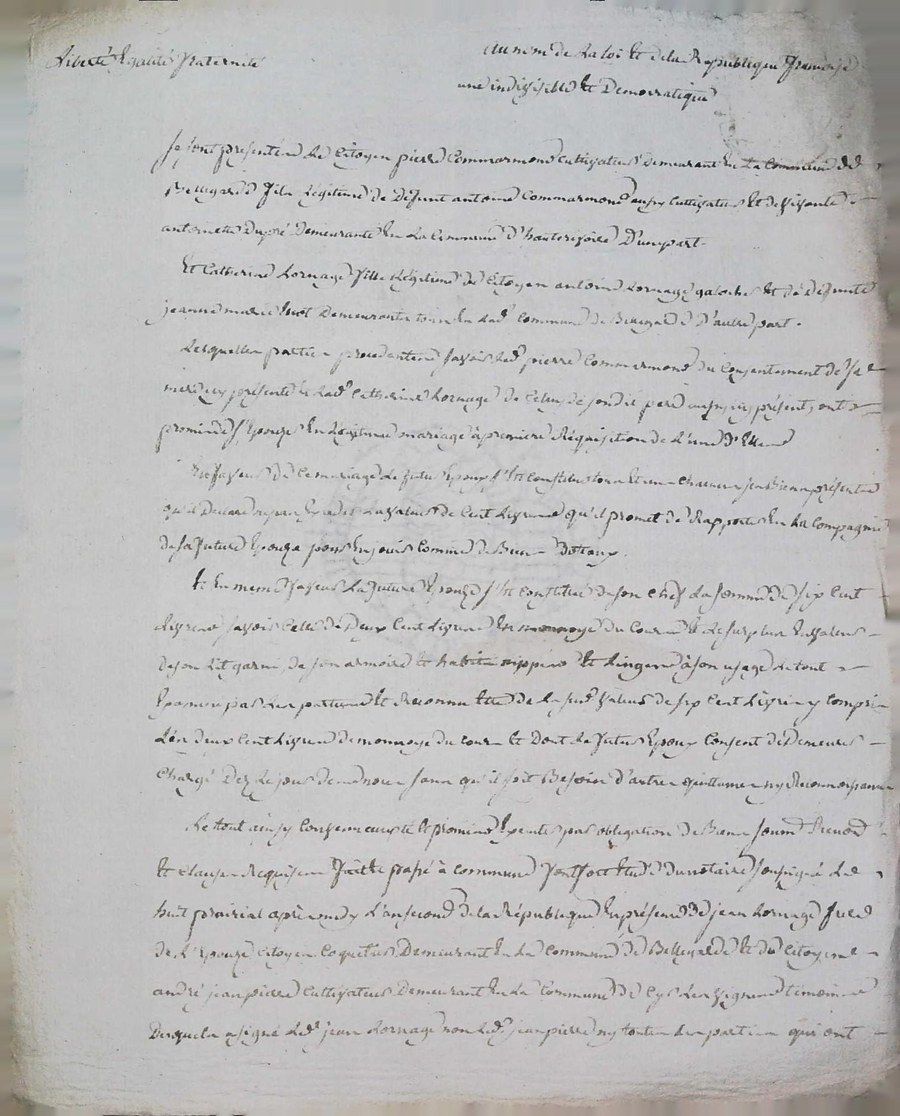 Liberté Egalité fraternité
au nom de La loi Et dela Republique françaisе
une indivisible Et Democratique
se sont présentés Le Citoyen pierre Commarmond Cultivateur Demeurant En La Commune de
Bellegarde fils Légitime de Défunt antoine Commarmond aussy Cultivateur Et de vivante
antoinette Dupré Demeurante En La Commune D'hauterivoire D'une part.
Et Catherine Lornage fille Légitime de Citoyen antoine Lornage galocher Et de défunte
jeanne marie Demeurants tous En Lade Commune de Bellegarde D'autre part.
Lesquelles parties procedantes savoir Led. pierre Commarmond du Consentement de sa
mere icy présente Et Lade Catherine Lornage de Celuy de son dit pere aussy icy présent, ont
promis de s'Epouser En Légitime mariage à premiere Réquisition de L'une D'Elles
En faveur de Ce mariage Le futur Epoux s'Est Constitué tous Et uns Chacuns ses biens présents
qu'il Declare La valeur de Cent Livres qu'il promet de Rapporter En La Compagnie
de sa future Epouse pour En jouir Comme de Biens Dotaux.
Et En meme faveur La future Epouse s'Est Constituée de son Chef La somme de six Cent
Livres savoir Celle de Deux Cent Livres En monnoye du Cours Et Le surplus En valeur
de son Lit garni, de son armoire Et habits nippes Et Linges à son usage Le tout
par Les parties Et Reconnu Etre de La susd. valeur de six Cent Livres y Compris
Les deux Cent Livres de monnoye du Cours Et Dont Le futur Epoux Consent de Demeurer
Chargé Dez Le jour des noces sans qu'il soit Besoin d'autres quittances ny Reconnoissances
Le tout ainsy Convenu Et promis par obligation de Biens
Et Clauses Requises fait Et passé à Commune Etude du notaire soussigné Le
huit prairial après midy L'an second de la République En présence de jean Lornage frere
de L'Epouse Citoyen Coquetier Demeurant En La Commune de Bellegarde Et du Citoyen
andré jeanpierre Cultivateur Demeurant En La Commune de témoins
Desquels a signé Led. jean Lornage non Led. jeanpierre ny toutes Les parties qui ont